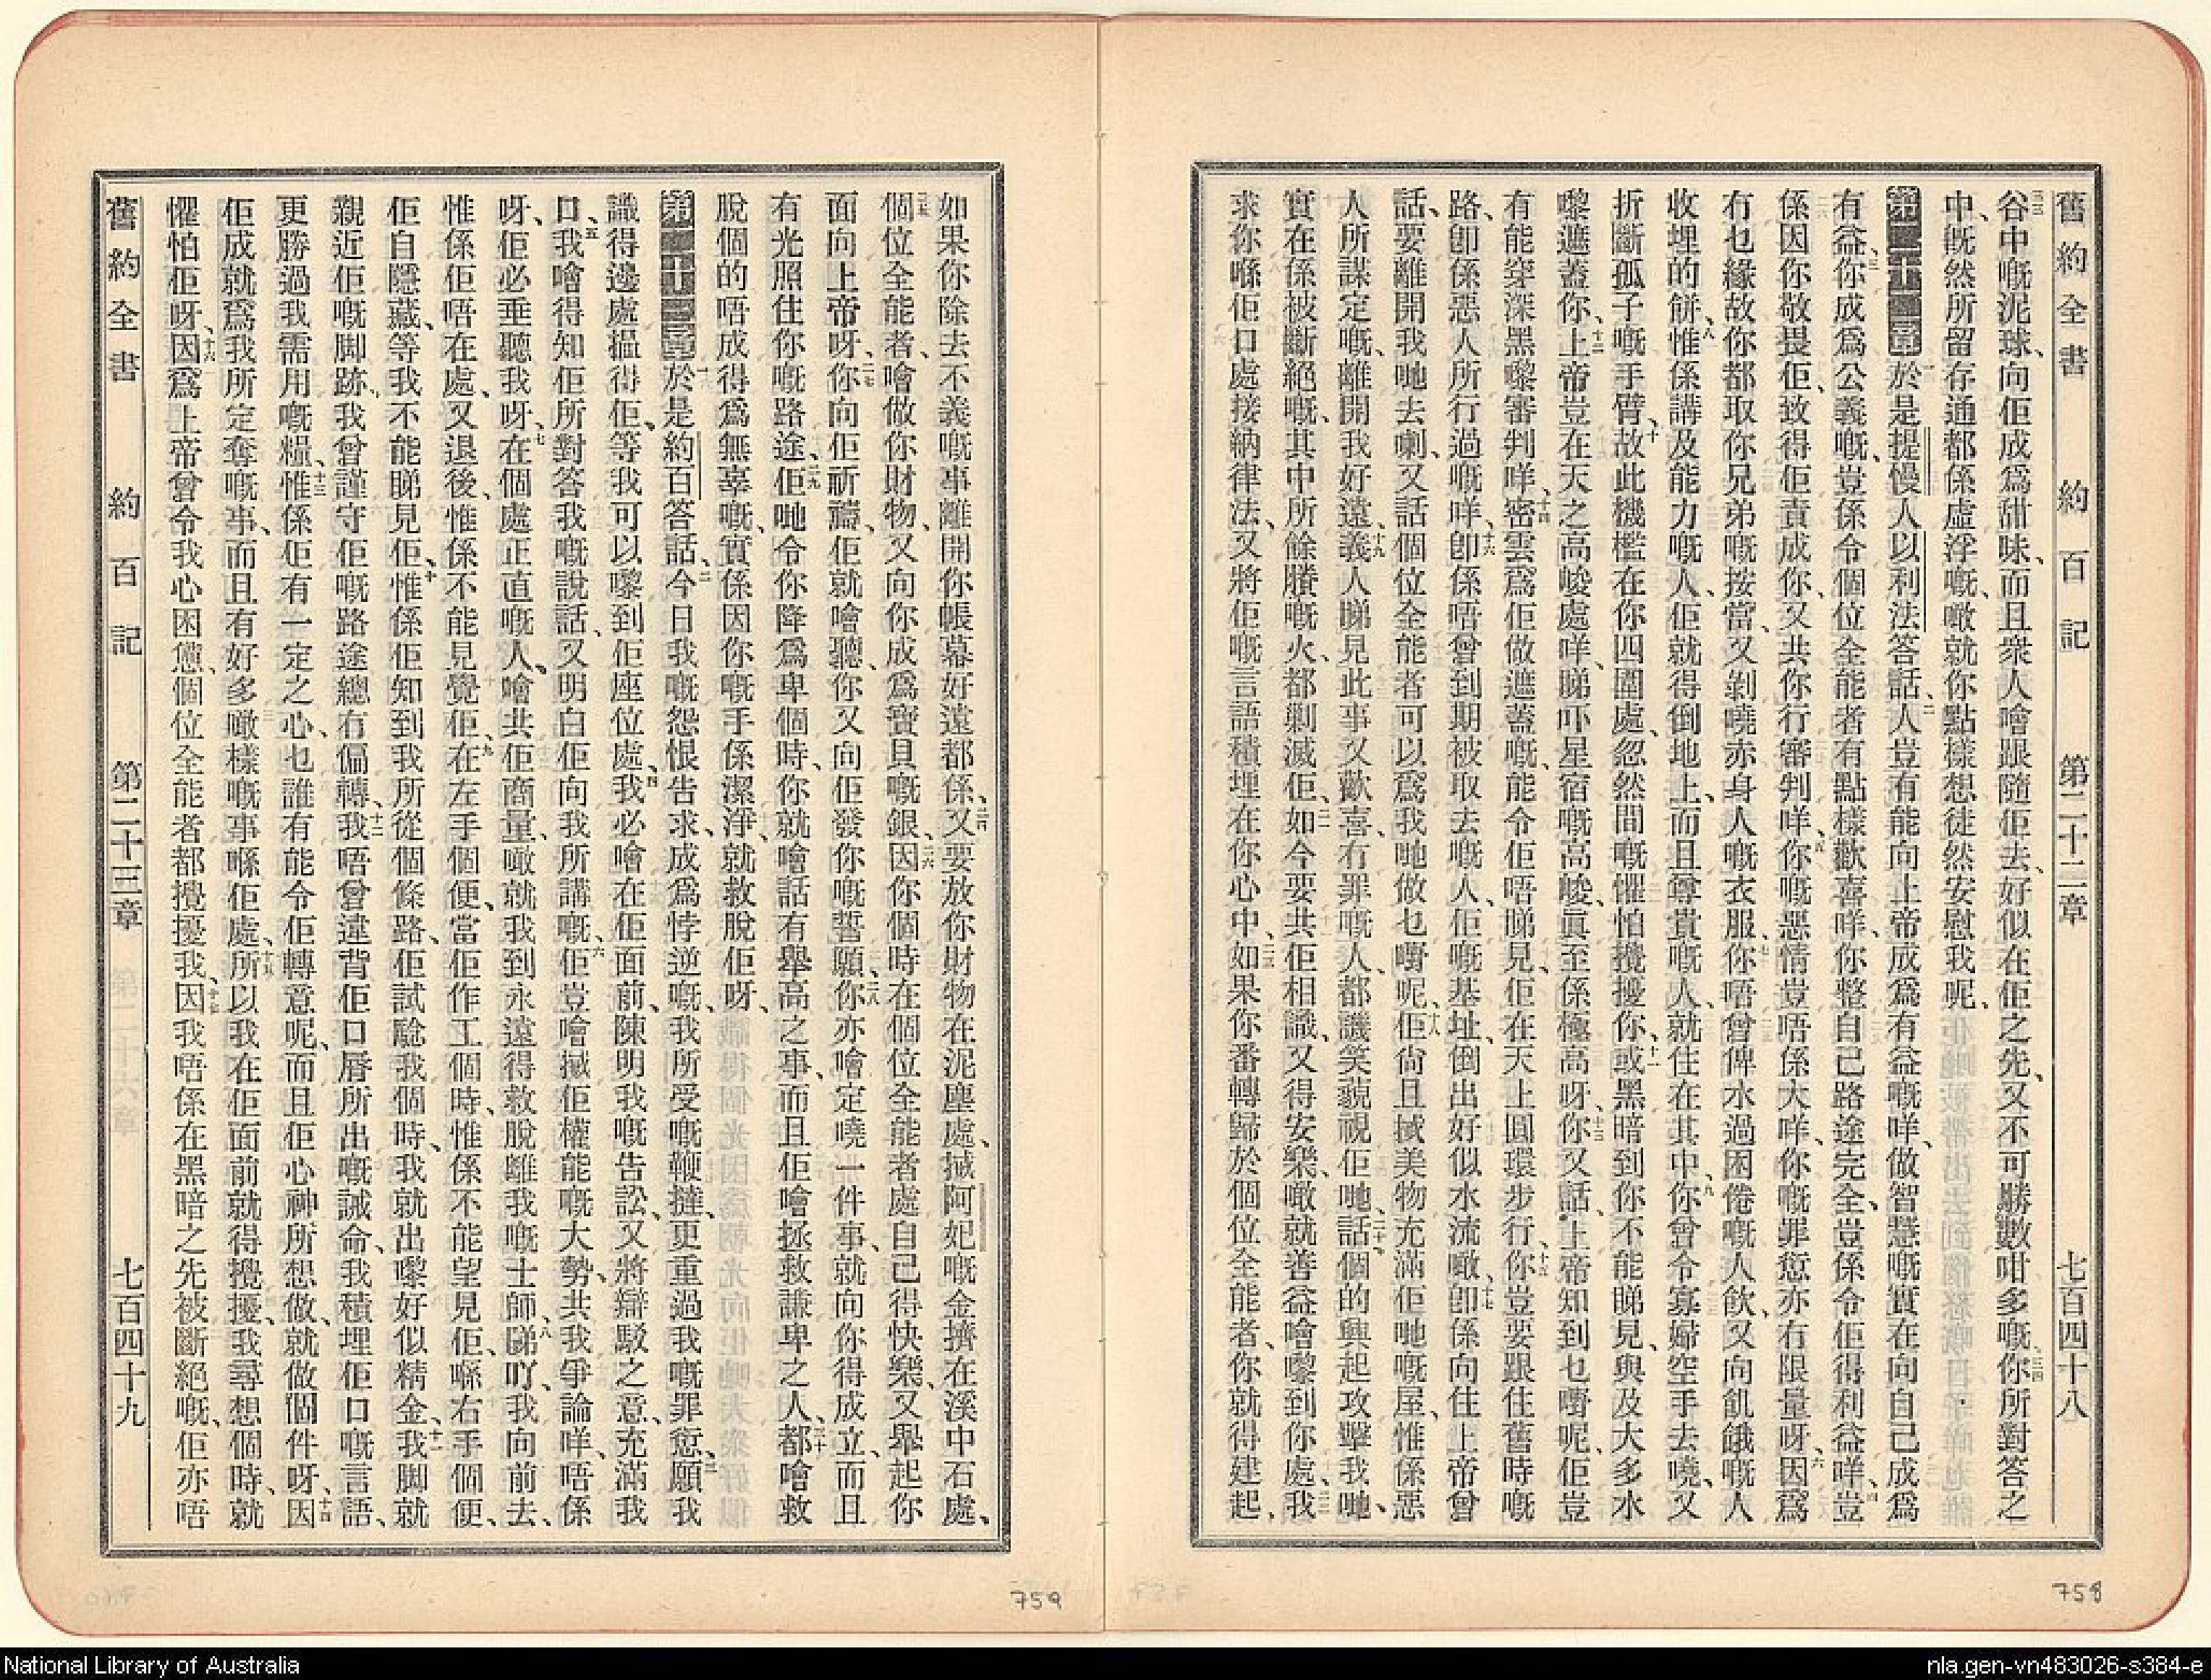 舊約全書 約百記 第二十二章 七百四十八
谷中嘅泥球、向佢成爲甜味、而且衆人噲跟隨佢去、好似在佢之先、又不可勝數咁多嘅、三四你所對答之
中、既然所留存通都係虛浮嘅、噉就你點樣想徒然安慰我呢、
第二十二章 一於是提慢人以利法答話、二人豈有能向上帝成爲有益嘅咩、做智慧嘅實在向自己成爲
有益、三你成爲公義嘅、豈係令個位全能者有點樣歡喜咩、你整自己路途完全、豈係令佢得利益咩、四豈
係因你敬畏佢、致得佢責成你、又共你行審判咩、五你嘅惡情豈唔係大咩、你嘅罪愆亦冇限量呀、六因爲
冇乜緣故、你都取你兄弟嘅按當、又剝嘵赤身人嘅衣服、七你唔曾俾水過困倦嘅人飲、又向飢餓嘅人
收埋的餅、八惟係講及能力嘅人、佢就得倒地上、而且尊貴嘅人、就住在其中、九你曾令寡婦空手去嘵、又
折斷孤子嘅手臂、十故此機檻在你四圍處、忽然間嘅懼怕攪擾你、十一或黑暗到你不能睇見、與及大多水
嚟遮蓋你、十二上帝豈在天之高峻處咩、睇吓星宿嘅高峻、眞至係極高呀、十三你又話、上帝知到乜嘢呢、佢豈
有能穿深黑嚟審判咩、十四密雲爲佢做遮蓋嘅、能令佢唔睇見、佢在天上圓環步行、十五你豈要跟住舊時嘅
路、卽係惡人所行過嘅咩、十六卽係唔曾到期被取去嘅人、佢嘅基址、倒出好似水流噉、十七卽係向住上帝曾
話、要離開我哋去喇、又話個位全能者可以爲我哋做乜嘢呢、十八佢尙且搣美物充滿佢哋嘅屋、惟係惡
人所謀定嘅、離開我好遠、十九義人睇見此事又歡喜、冇罪嘅人、都譏笑藐視佢哋、二十話個的興起攻擊我哋、
實在係被斷絕嘅、其中所餘賸嘅、火都剿滅佢、二一如今要共佢相識、又得安樂、噉就善益噲嚟到你處、二二我
求你喺佢口處接納律法、又將佢嘅言語積埋在你心中、二三如果你番轉歸於個位全能者、你就得建起、
如果你除去不義嘅事離開你帳幕好遠都係、二四又要放你財物在泥塵處、搣阿妃嘅金擠在溪中石處、
二五個位全能者、噲做你財物、又向你成爲寶貝嘅銀、二六因你個時在個位全能者處自己得快樂、又舉起你
面向上帝呀、二七你向佢祈禱、佢就噲聽、你又向佢發你嘅誓願、二八你亦噲定嘵一件事、就向你得成立、而且
有光照住你嘅路途、二九佢哋令你降爲卑個時、你就噲話有舉高之事、而且佢噲拯救謙卑之人、三十都噲救
脫個的唔成得爲無辜嘅、實係因你嘅手係潔淨、就救脫佢呀、
第二十三章 一於是約百答話、二今日我嘅怨恨告求、成爲悖逆嘅、我所受嘅鞭撻、更重過我嘅罪愆、三願我
識得邊處揾得佢、等我可以嚟到佢座位處、四我必噲在佢面前、陳明我嘅告訟、又將辯駁之意、充滿我
口、五我噲得知佢所對答我嘅說話、又明白佢向我所講嘅、六佢豈噲搣佢權能嘅大勢、共我爭論咩、唔係
呀、佢必垂聽我呀、七在個處正直嘅人、噲共佢商量、噉就我到永遠得救脫離我嘅士師、八睇吖、我向前去、
惟係佢唔在處、又退後、惟係不能見覺佢、九在左手個便、當佢作工個時、惟係不能望見佢、喺右手個便、
佢自隱藏、等我不能睇見佢、十惟係佢知到我所從個條路、佢試騐我個時、我就出嚟好似精金、十一我脚就
親近佢嘅脚跡、我曾謹守佢嘅路途總冇偏轉、十二我唔曾違背佢口唇所出嘅誡命、我積埋佢口嘅言語、
更勝過我需用嘅糧、十三惟係佢有一定之心、乜誰有能令佢轉意呢、而且佢心神所想做、就做個件呀、十四因
佢成就爲我所定奪嘅事、而且有好多噉樣嘅事喺佢處、十五所以我在佢面前就得攪擾、我尋想個時、就
懼怕佢呀、十六因爲上帝曾令我心困憊、個位全能者都攪擾我、十七因我唔係在黑暗之先被斷絕嘅、佢亦唔
舊約全書 約百記 第二十三章 七百四十九
758
759
National Library of Australia
nla.gen-vn483026-s384-e